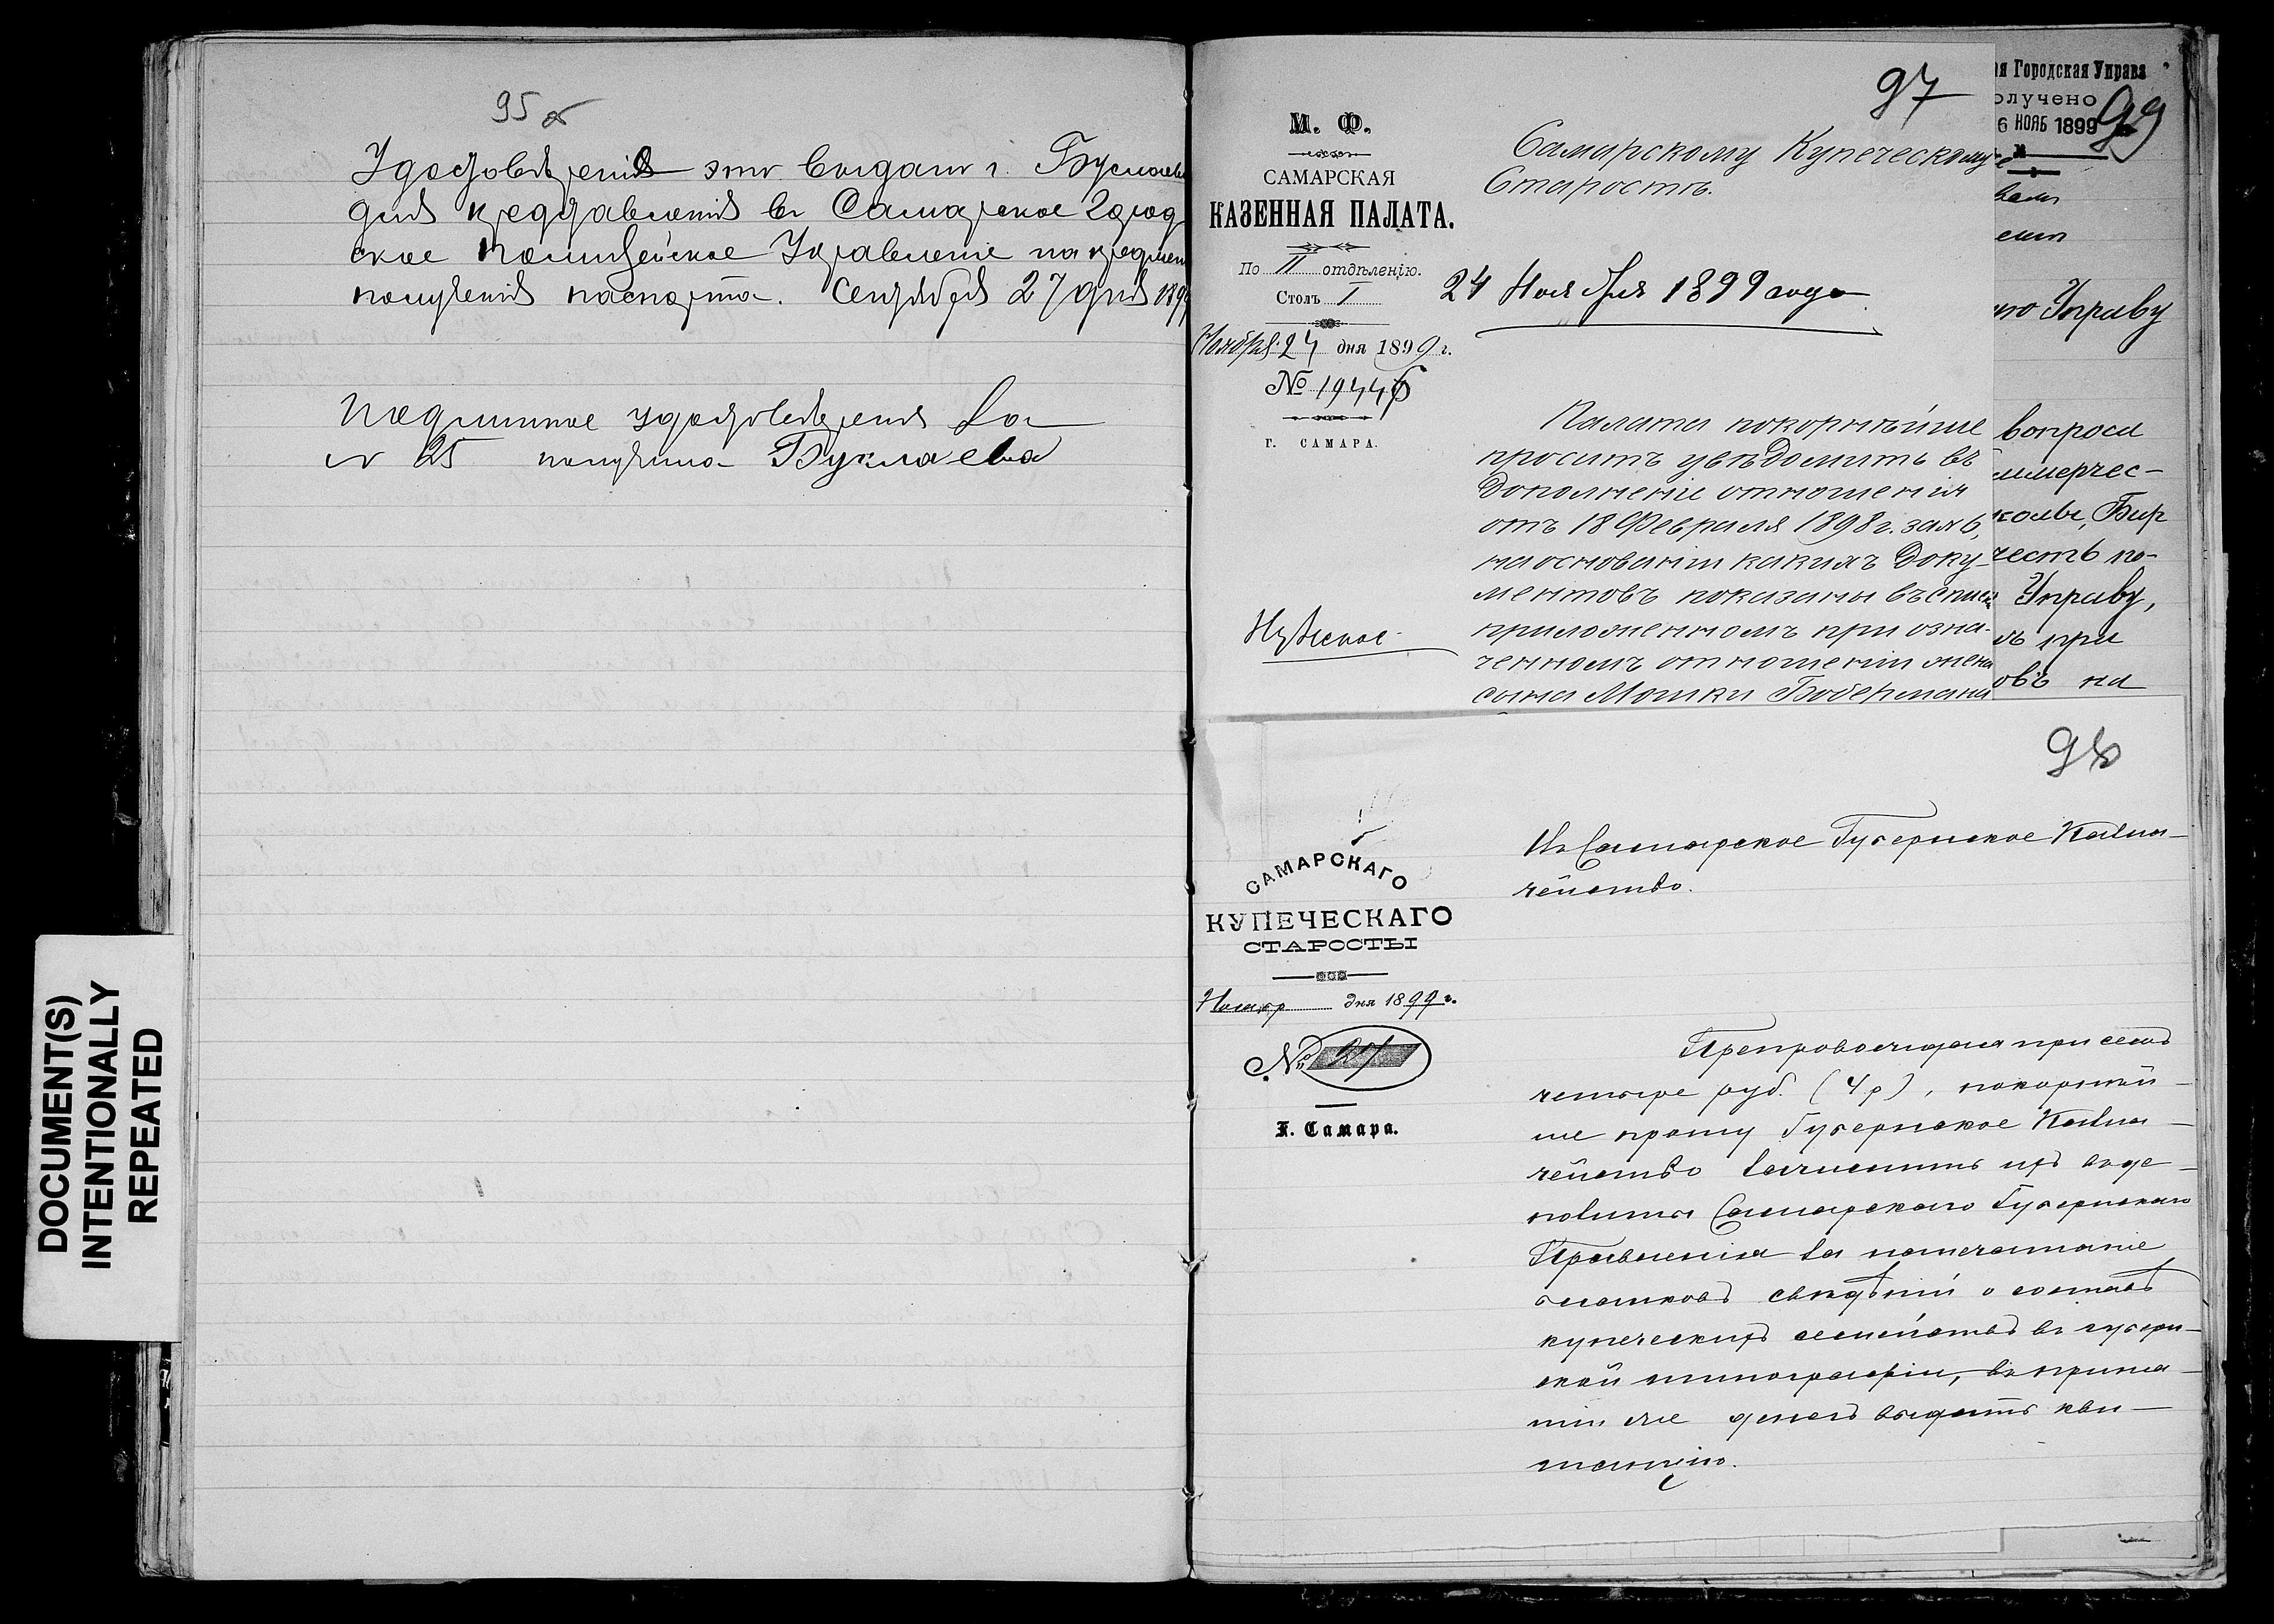 95 об
Удостоверенiе это выдано г. Буслаев
для представленiя въ Самарское Город
ское Полицейское Управленiе на предмет
полученiя паспорта. Сентября 27 дня 1899
Подлинное удостоверенiе за
№ 25 получила Буслаева
97
М. Ф.
САМАРСКАЯ
КАЗЕННАЯ ПАЛАТА.
По II отдѣленію.
Столъ I
Ноября 24 дня 1899 г.
№ 19446
Г. САМАРА.
Самарскому Купеческому
Старостѣ.
24 Ноября 1899 года
Палата покорнѣйше
проситъ увѣдомить въ
дополненіе отношенія
отъ 18 Февраля 1898 г. за № 6,
на основаніи какихъ доку-
ментовъ показаны въ спис
приложенномъ при озна-
ченномъ отношеніи жена
сына Мошки Бобермана
ая Городская Управа
олучено
6 НОЯБ 1899
99
ую Управу
вопроса
ммерчес-
колы, Бир
честь по-
Управу,
ъ при
овъ на
98
САМАРСКАГО
КУПЕЧЕСКАГО
СТАРОСТЫ
Ноябр дня 1899 г.
№ 27
Г. Самара.
Въ Самарское Губернское Казна-
чейство.
Препровождая при семъ
четыре руб. (4 р), покорнѣй-
ше прошу Губернское Казна-
чейство зачислить ихъ въ де-
позиты Самарскаго Губернскаго
Правленія за напечатаніе
бланковъ свѣдѣній о составѣ
купеческихъ семействъ въ губерн-
ской типографіи, въ приня-
тіи же денегъ выдать кви-
танцію.
DOCUMENT(S)
INTENTIONALLY
REPEATED